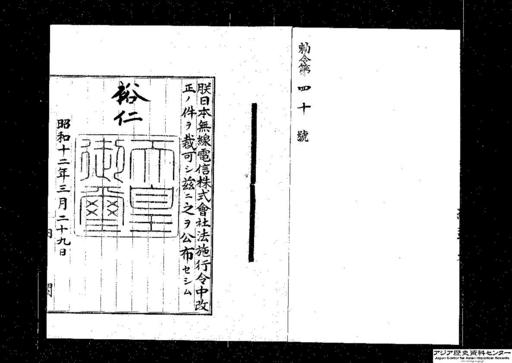 勅令第四十號
朕日本無線電信株式會社法施行令中改
正ノ件ヲ裁可シ茲ニ之ヲ公布セシム
裕仁
天皇御璽
昭和十二年三月二十九日
アジア歴史資料センター
Japan Center for Asian Historical Records